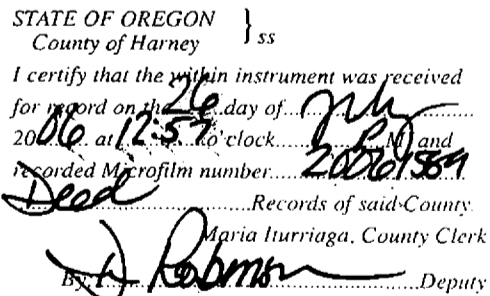 STATE OF OREGON } ss
County of Harney
I certify that the within instrument was received
for record on the 26 day of July
2006 at 12:57 o'clock P M and
recorded Microfilm number
Deed Records of said County
Maria Iturriaga, County Clerk
By: D Robinson Deputy